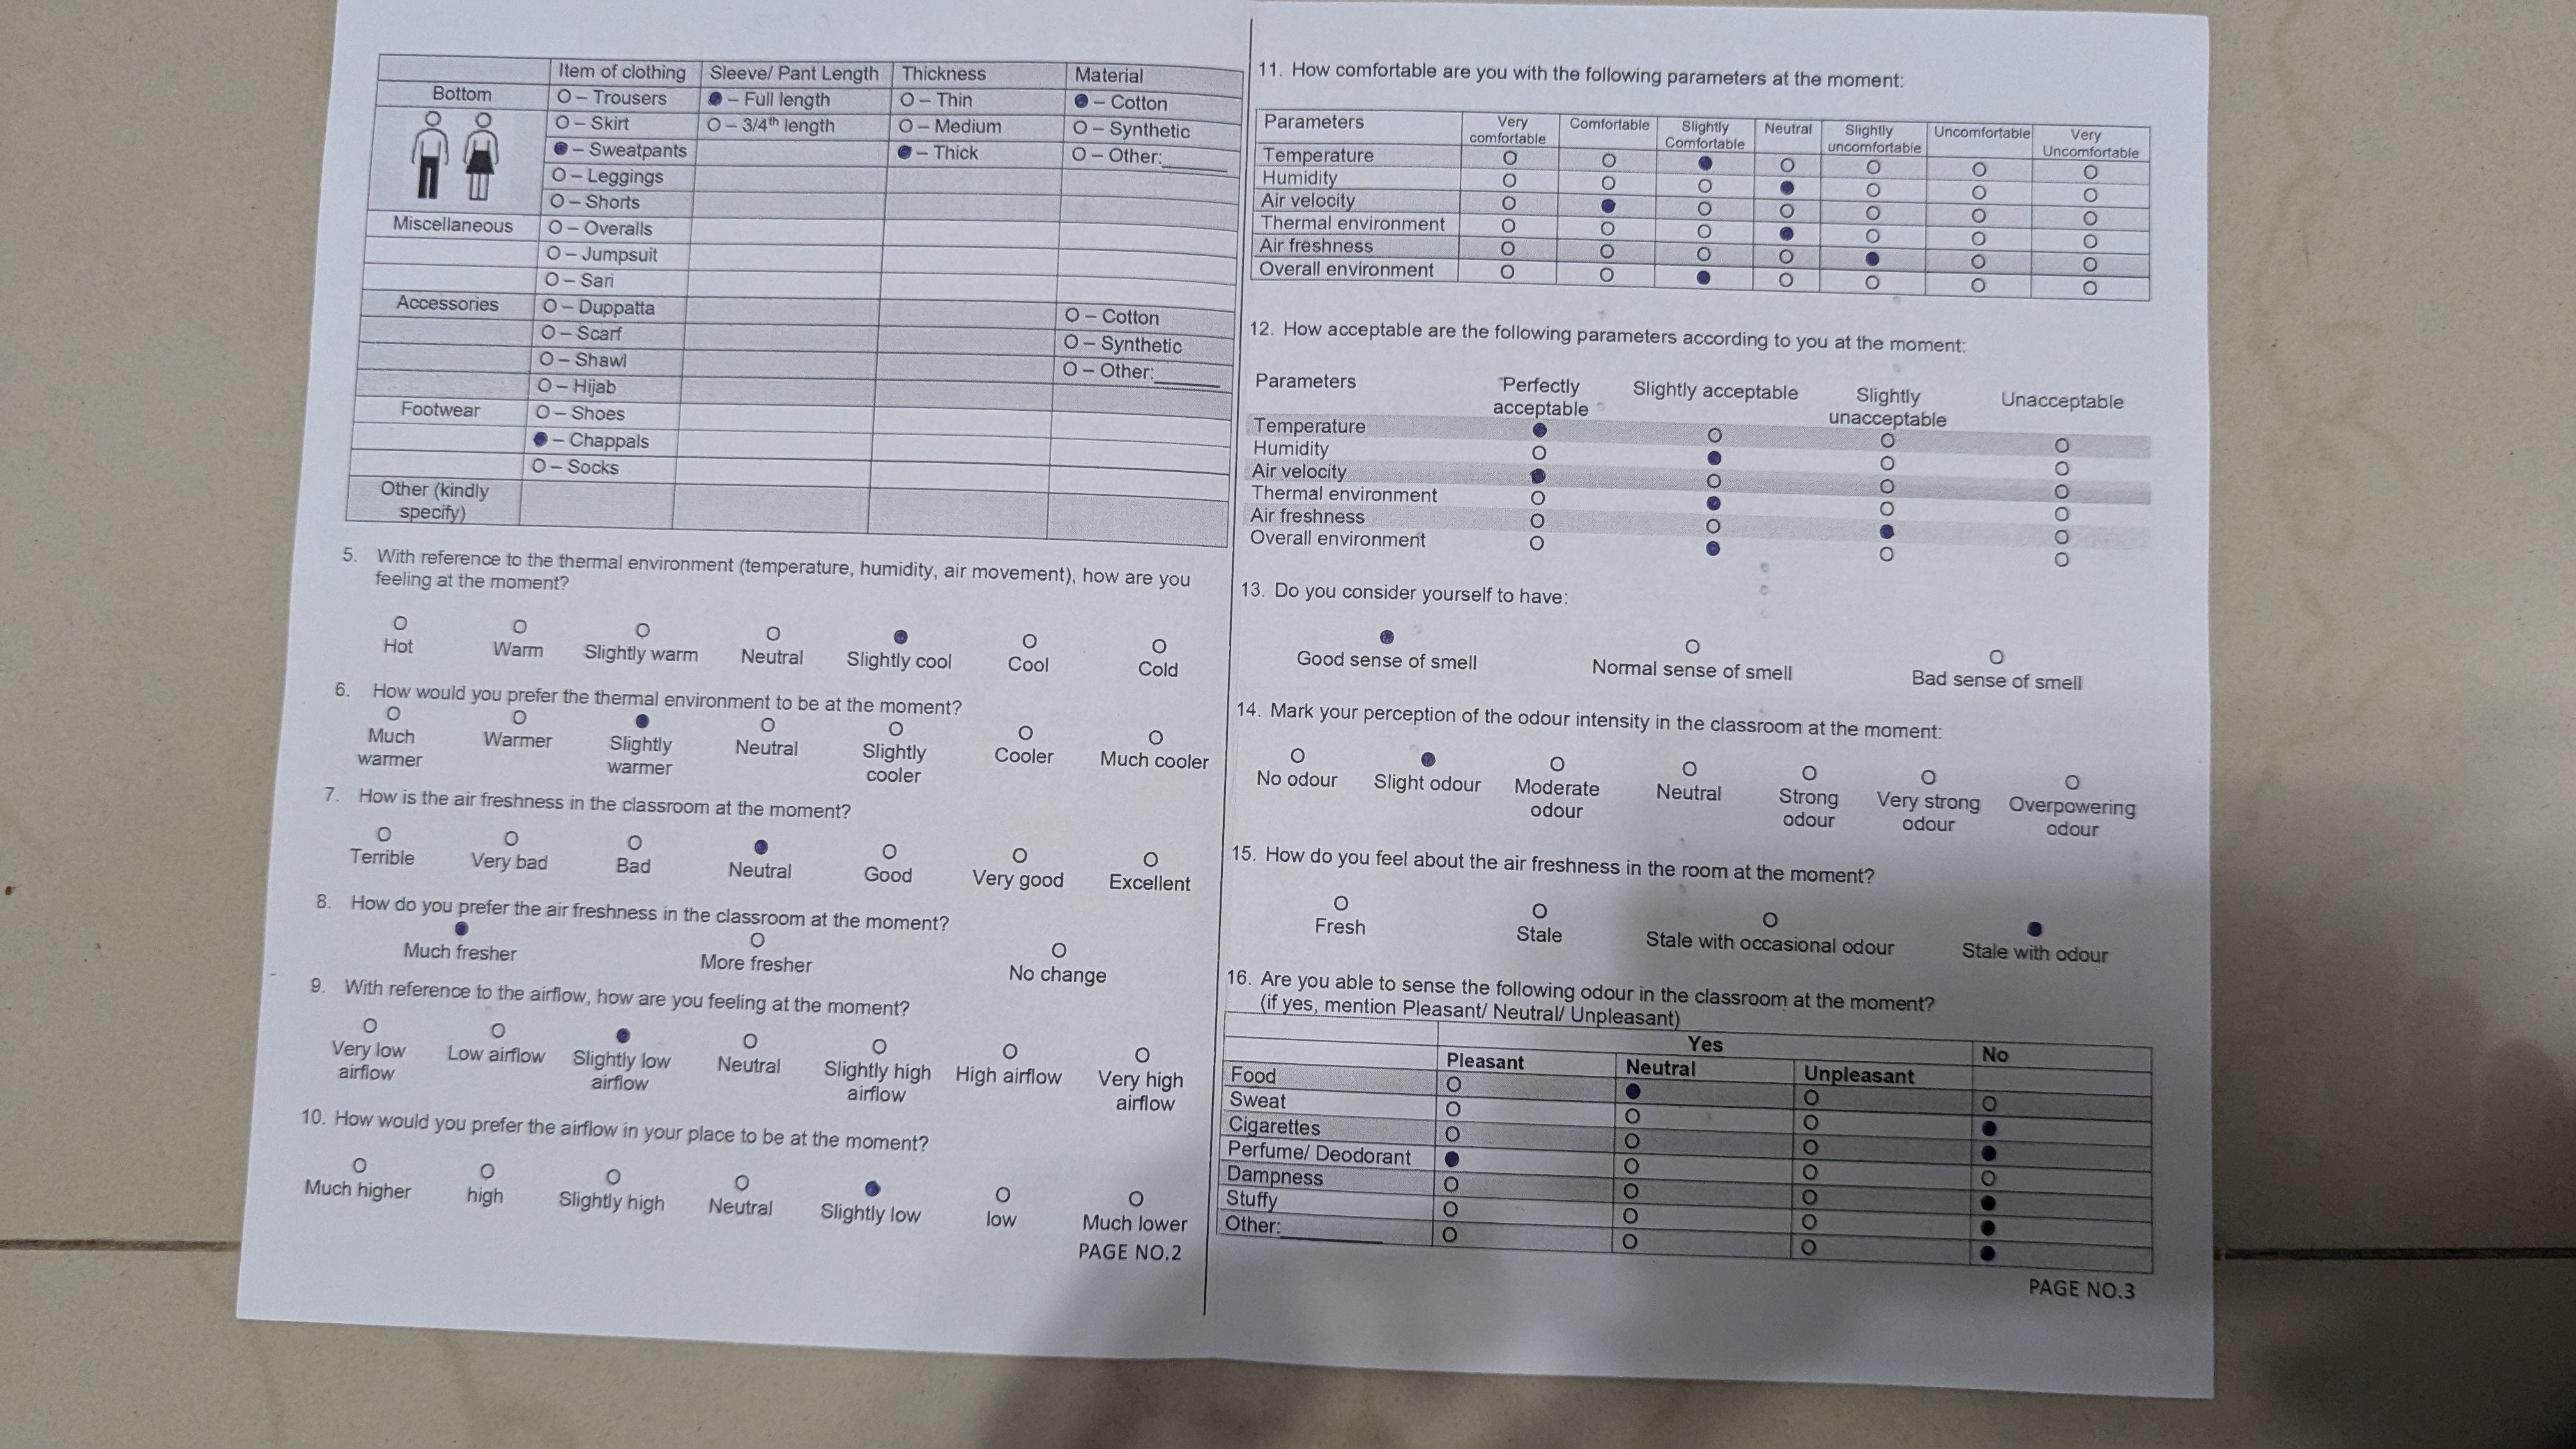 Item of clothing Sleeve/ Pant Length Thickness Material
Bottom O – Trousers ● – Full length O – Thin ● – Cotton
O – Skirt O – 3/4th length O – Medium O – Synthetic
● – Sweatpants ● – Thick O – Other:______
O – Leggings
O – Shorts
Miscellaneous O – Overalls
O – Jumpsuit
O – Sari
Accessories O – Duppatta O – Cotton
O – Scarf O – Synthetic
O – Shawl O – Other:______
O – Hijab
Footwear O – Shoes
● – Chappals
O – Socks
Other (kindly
specify)
5. With reference to the thermal environment (temperature, humidity, air movement), how are you
feeling at the moment?
O O O O ● O O
Hot Warm Slightly warm Neutral Slightly cool Cool Cold
6. How would you prefer the thermal environment to be at the moment?
O O ● O O O O
Much Warmer Slightly Neutral Slightly Cooler Much cooler
warmer warmer cooler
7. How is the air freshness in the classroom at the moment?
O O O ● O O O
Terrible Very bad Bad Neutral Good Very good Excellent
8. How do you prefer the air freshness in the classroom at the moment?
● O O
Much fresher More fresher No change
9. With reference to the airflow, how are you feeling at the moment?
O O ● O O O O
Very low Low airflow Slightly low Neutral Slightly high High airflow Very high
airflow airflow airflow airflow
10. How would you prefer the airflow in your place to be at the moment?
O O O O ● O O
Much higher high Slightly high Neutral Slightly low low Much lower
PAGE NO.2
11. How comfortable are you with the following parameters at the moment:
Parameters Very Comfortable Slightly Neutral Slightly Uncomfortable Very
comfortable Comfortable uncomfortable Uncomfortable
Temperature O O ● O O O O
Humidity O O O ● O O O
Air velocity O ● O O O O O
Thermal environment O O O ● O O O
Air freshness O O O O ● O O
Overall environment O O ● O O O O
12. How acceptable are the following parameters according to you at the moment:
Parameters Perfectly Slightly acceptable Slightly Unacceptable
acceptable unacceptable
Temperature ● O O O
Humidity O ● O O
Air velocity ● O O O
Thermal environment O ● O O
Air freshness O O ● O
Overall environment O ● O O
13. Do you consider yourself to have:
● O O
Good sense of smell Normal sense of smell Bad sense of smell
14. Mark your perception of the odour intensity in the classroom at the moment:
O ● O O O O O
No odour Slight odour Moderate Neutral Strong Very strong Overpowering
odour odour odour odour
15. How do you feel about the air freshness in the room at the moment?
O O O ●
Fresh Stale Stale with occasional odour Stale with odour
16. Are you able to sense the following odour in the classroom at the moment?
(if yes, mention Pleasant/ Neutral/ Unpleasant)
Yes No
Pleasant Neutral Unpleasant
Food O ● O O
Sweat O O O ●
Cigarettes O O O ●
Perfume/ Deodorant ● O O O
Dampness O O O ●
Stuffy O O O ●
Other:__________ O O O ●
PAGE NO.3